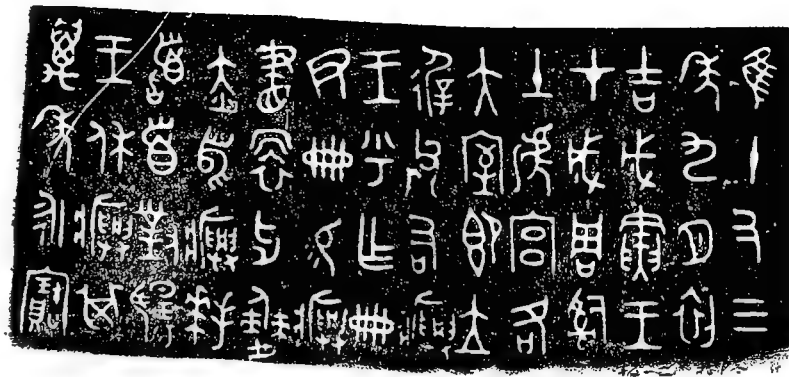 隹十又三
年九月初
吉戊寅王
才成周司
土淲宮各
大室即立
徲父右𤼈
王乎乍冊
尹冊易𤼈
畫牙僰
赤舄𤼈拜
𩒨首對揚
王休𤼈其
萬年永寶